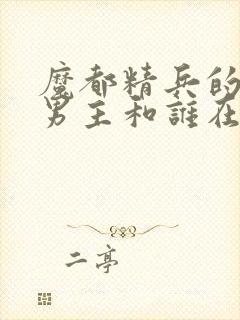 魔都精兵的
男主和誰在
二亭